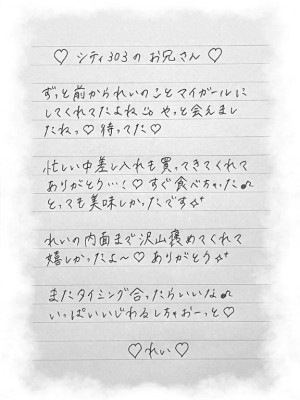 ♡ シティ303の お兄さん ♡
ずっと前かられいのことマイガールに
してくれてたよね♪。やっと会えまし
たねっ♡ 待ってた♡
忙しい中差し入れも買ってきてくれて
ありがとう…!♡ すぐ食べちゃった♪
とっても美味しかったです✨
れいの内面まで沢山褒めてくれて
嬉しかったよ〜♡ ありがとう✨
またタイミング合ったらいいな♪
いっぱいいじわるしちゃおーっと♡
♡れい♡